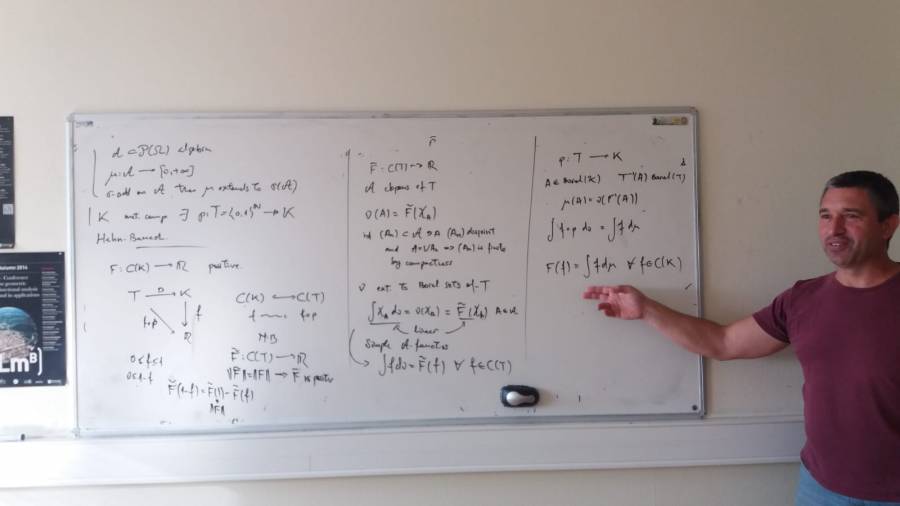 𝒜 ⊂ 𝒫(Ω) algebra
μ: 𝒜 → [0,+∞]
σ-add on 𝒜 then μ extends to σ(𝒜)
K met. comp ∃ φ: T={0,1}^ℕ → K
Hahn-Banach
F: C(K) → ℝ positive.
T → K
f∘φ
f
ℝ
C(K) ↔ C(T)
f f∘φ
H-B
F̃: C(T) → ℝ
‖F̃‖=‖F‖ → F̃ is positive
0≤f≤1
0≤1-f
F̃(1-f) = F̃(1) - F̃(f)
‖F‖
F̃
F̃: C(T) → ℝ
𝒜 clopens of T
ν(A) = F̃(χ_A)
(A_n) ⊂ 𝒜 (A_n) disjoint
and A=∪A_n ⇒ (A_n) is finite
by compactness
ν ext. to Borel sets of T
∫χ_A dν = ν(A) = F̃(χ_A) A∈𝒜
linear
Simple 𝒜-functions
∫f dν = F̃(f) ∀ f∈C(T)
φ: T → K
A∈Borel(K) φ⁻¹(A) Borel(T)
μ(A) = ν(φ⁻¹(A))
∫f∘φ dν = ∫f dμ
F(f) = ∫f dμ ∀ f∈C(K)
Autumn 2014
Conference
LmB